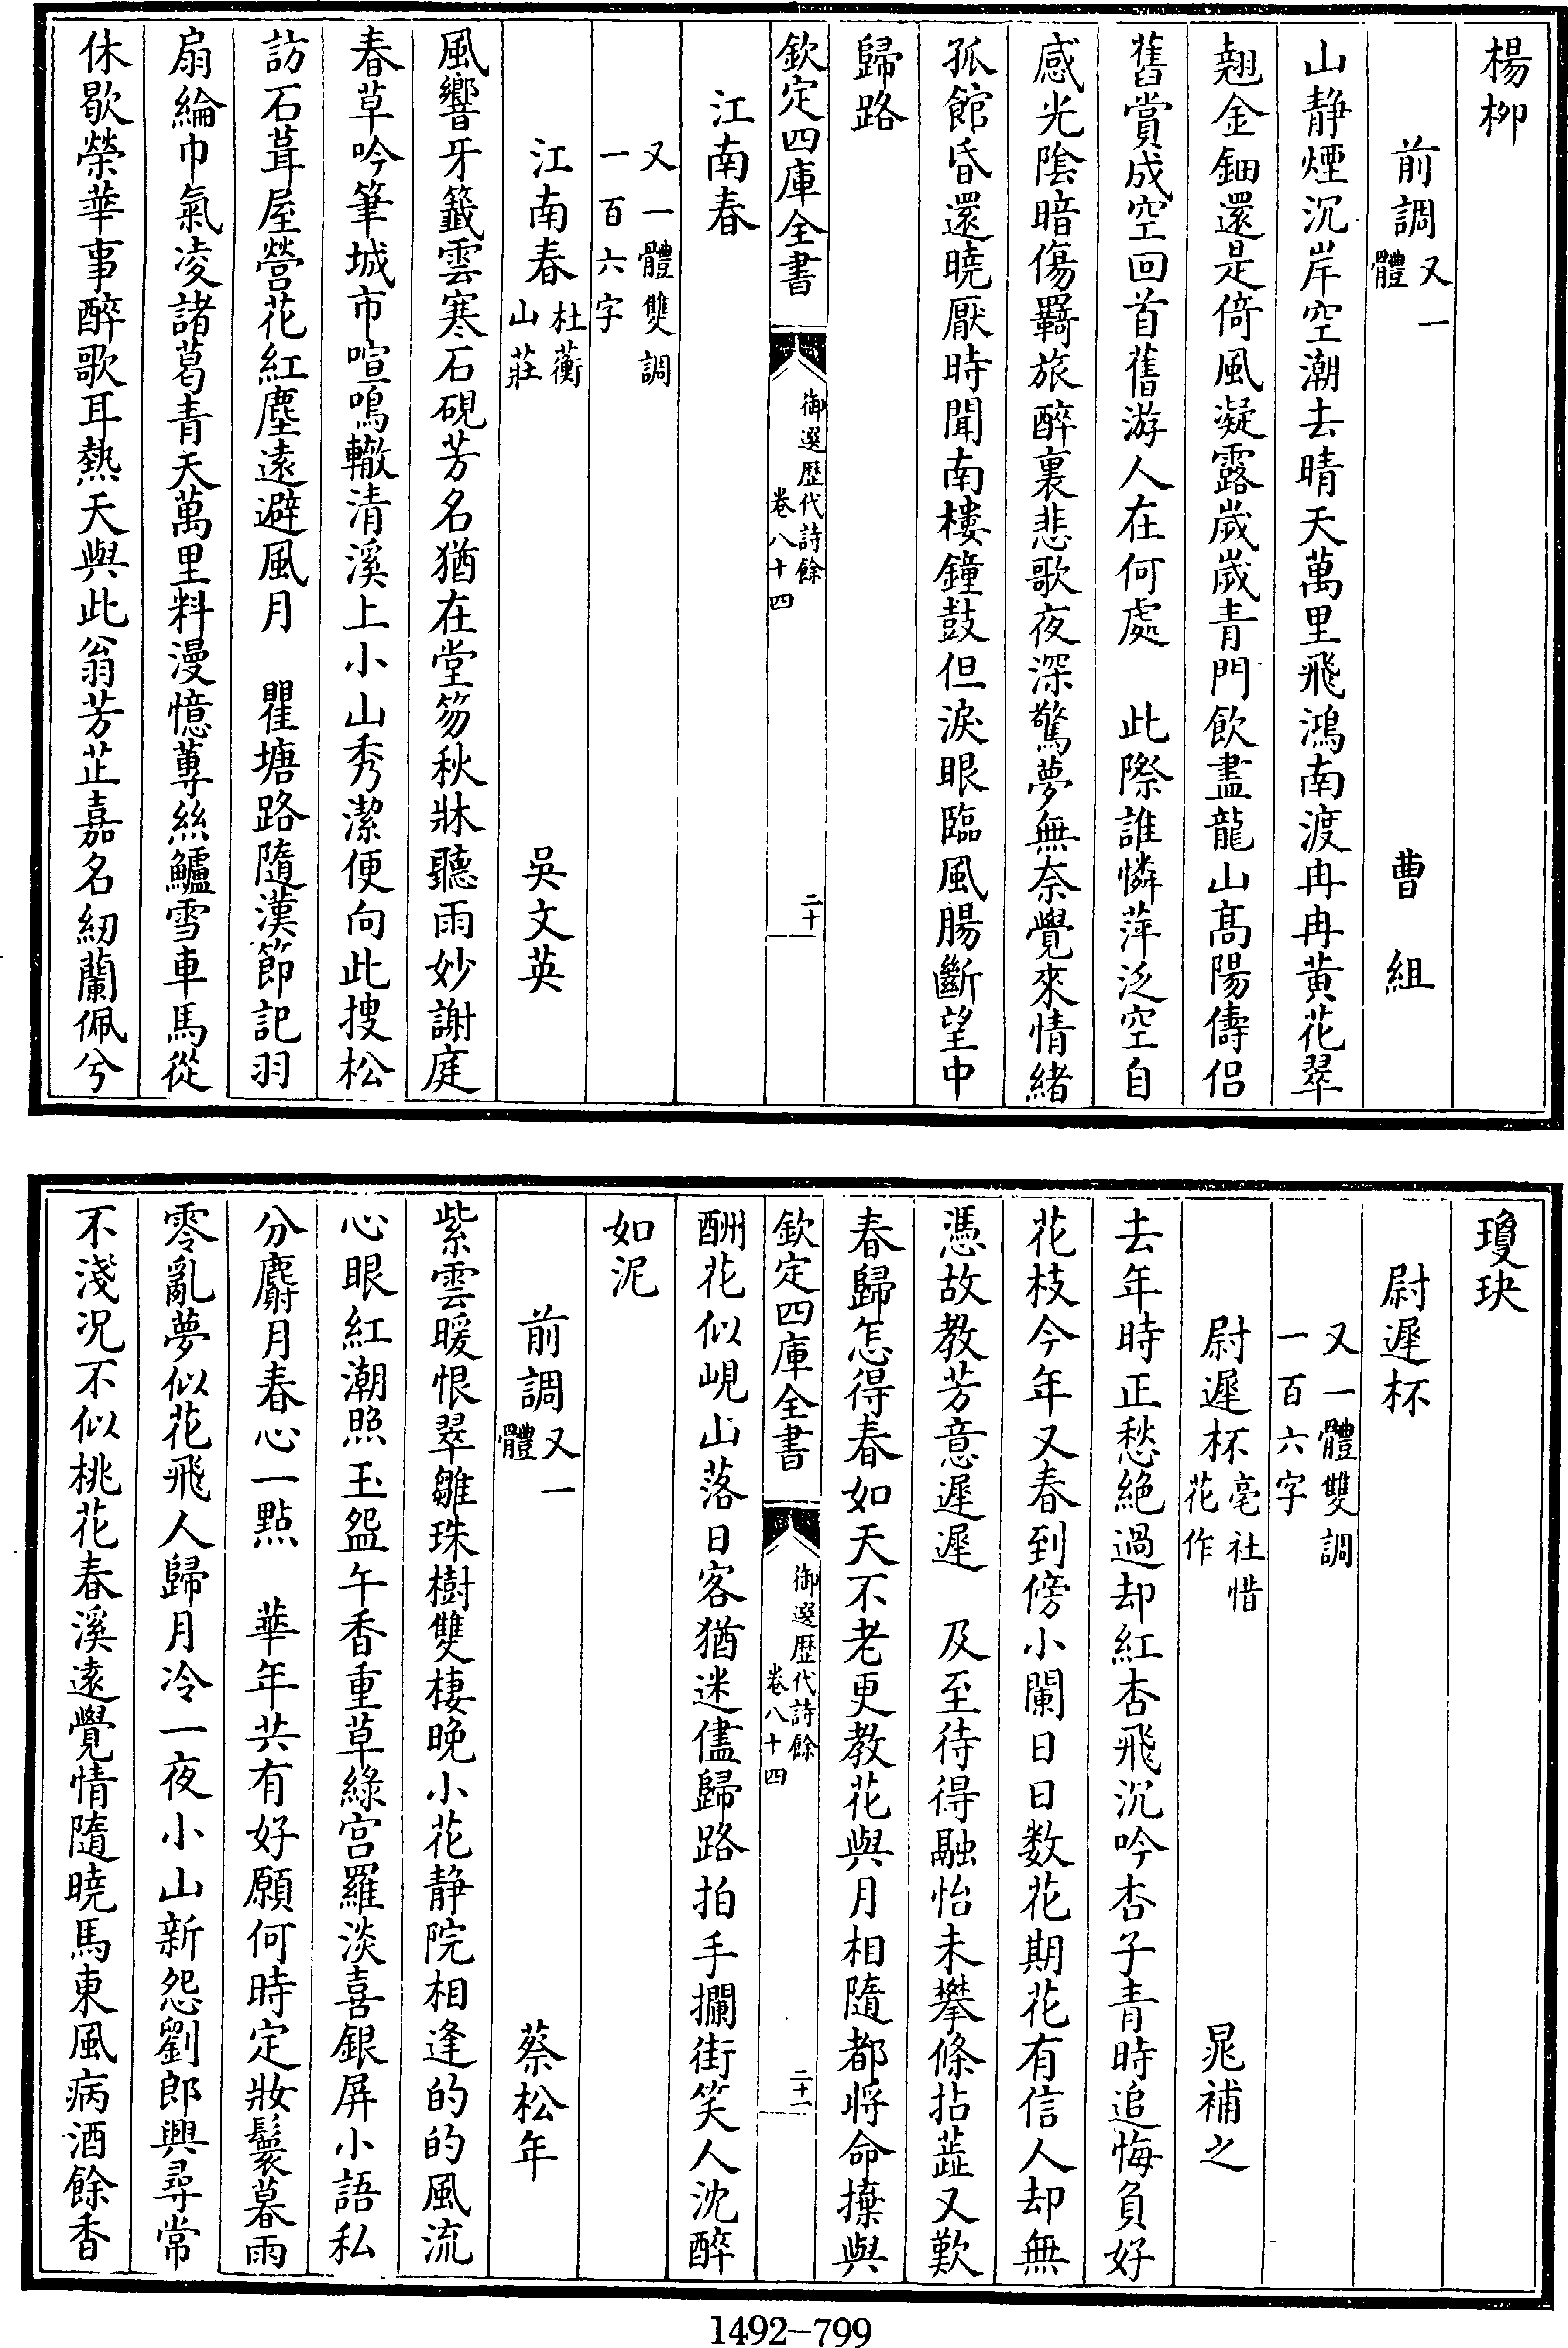 楊栁
前調又一體　曹組
山静煙沉岸空潮去晴天萬里飛鴻南渡冉冉黄花翠
翹金鈿還是倚風凝露嵗嵗青門飲盡龍山髙陽儔侣
舊賞成空回首舊游人在何處　此際誰憐萍泛空自
感光陰暗傷羇旅醉裏悲歌夜深驚夢無奈覺來情緒
孤館昏還曉厭時聞南樓鐘鼓但淚眼臨風腸斷望中
歸路
欽定四庫全書　御選歴代詩餘　卷八十四　二十
江南春
又一體雙調一百六字
江南春杜蘅山莊　吳文英
風響牙籖雲寒石硯芳名猶在堂笏秋牀聽雨妙謝庭
春草吟筆城市喧鳴轍清溪上小山秀潔便向此搜松
訪石葺屋營花紅塵遠避風月　瞿塘路隨漢節記羽
扇綸巾氣凌諸葛青天萬里料漫憶蓴絲鱸雪車馬從
休歇榮華事醉歌耳熱天與此翁芳芷嘉名紉蘭佩兮
瓊玦
尉遲杯
又一體雙調一百六字
尉遲杯亳社惜花作　晁補之
去年時正愁絶過却紅杏飛沉吟杏子青時追悔負好
花枝今年又春到傍小闌日日数花期花有信人却無
憑故教芳意遲遲　及至待得融怡未攀條拈蘂又歎
春歸怎得春如天不老更教花與月相隨都將命㨿與
酬花似峴山落日客猶迷儘歸路拍手攔街笑人沈醉
欽定四庫全書　御選歴代詩餘　卷八十四　二十一
如泥
前調又一體　蔡松年
紫雲暖恨翠雛珠樹雙棲晚小花静院相逢的的風流
心眼紅潮照玉盌午香重草綠宫羅淡喜銀屏小語私
分麝月春心一點　華年共有好願何時定妝鬟暮雨
零亂夢似花飛人歸月冷一夜小山新怨劉郎興尋常
不淺况不似桃花春溪遠覺情隨曉馬東風病酒餘香
1492-799